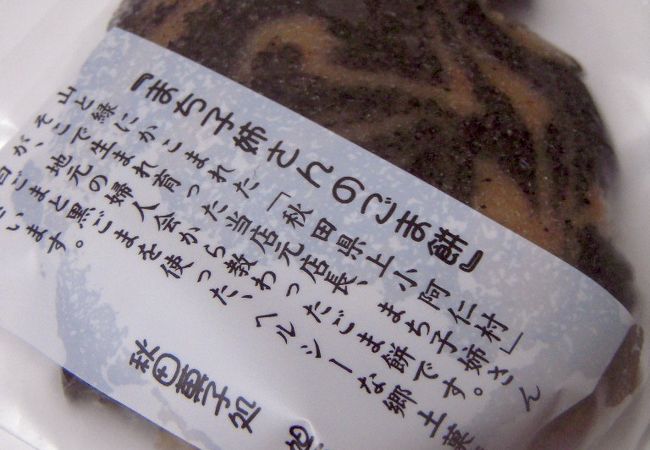 『まち子姉さんのごま餅』
山と緑にかこまれた「秋田県上小阿仁村」
そこで生まれ育った当店元店長、まち子姉さん
が、地元の婦人会から教わったごま餅です。
白ごまと黒ごまを使った、ヘルシーな郷土菓
います。
秋田菓子処